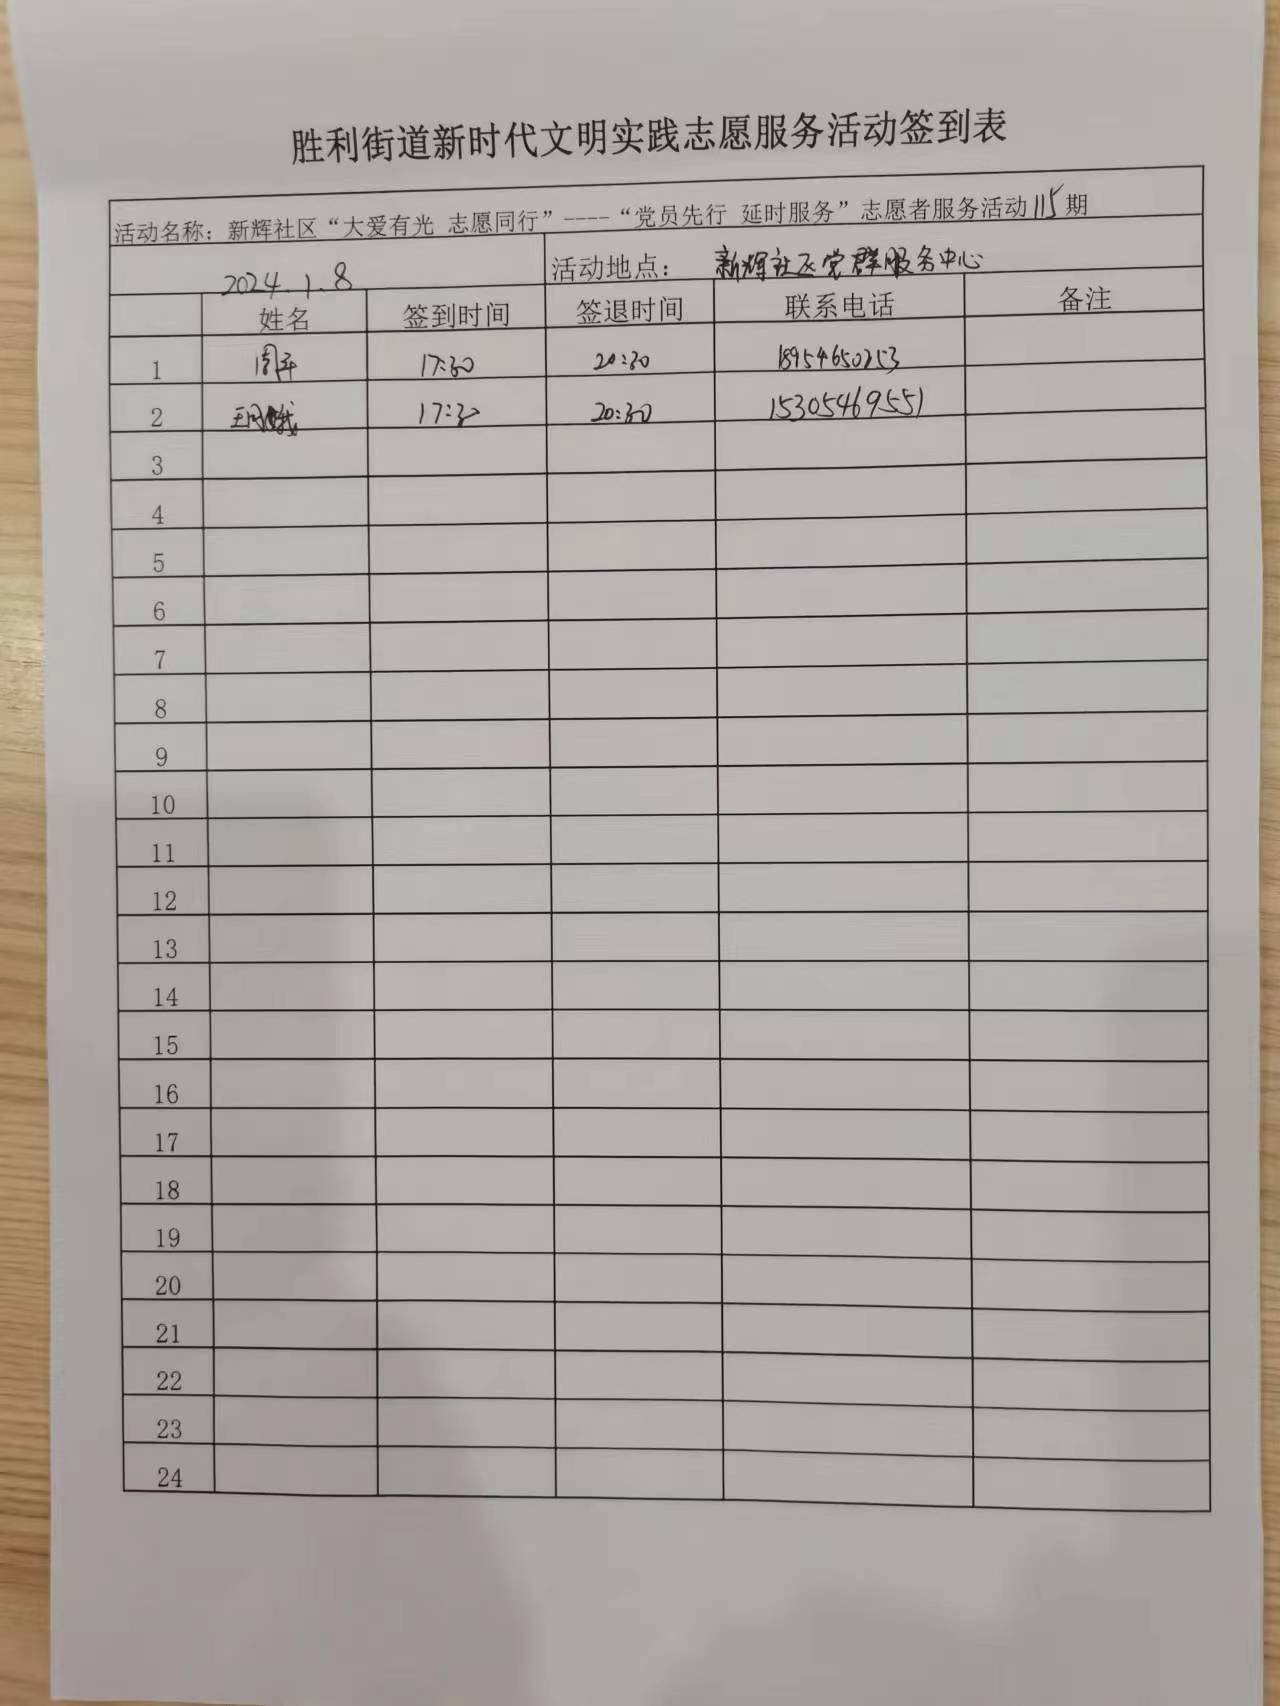 胜利街道新时代文明实践志愿服务活动签到表
活动名称：新辉社区“大爱有光 志愿同行”----“党员先行 延时服务”志愿者服务活动115期
2024.1.8 活动地点： 新辉社区党群服务中心
姓名 签到时间 签退时间 联系电话 备注
1 周平 17:30 20:30 18954650253
2 17:30 20:30 15305469551
3
4
5
6
7
8
9
10
11
12
13
14
15
16
17
18
19
20
21
22
23
24